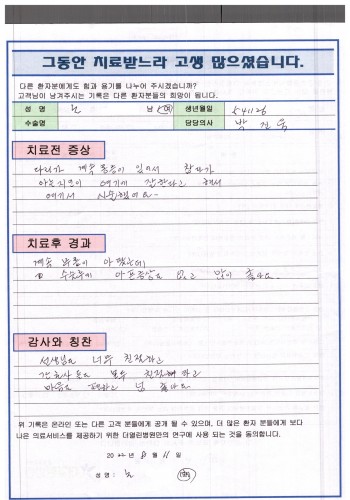 그동안 치료받느라 고생 많으셨습니다.
다른 환자분에게도 힘과 용기를 나누어 주시겠습니까?
고객님이 남겨주시는 기록은 다른 환자분들의 희망이 됩니다.
성 명 노 남 / 여 생년월일 541126
수술명 담당의사 박
치료전 증상
다리가 계속 통증이 있어서 참다가
아는지인이 여기가 잘한다고 해서
여기서 수술했어요-
치료후 경과
계속 아팠는데
수술후에 아프증상도 없고 많이 좋아요.
감사와 칭찬
선생님도 너무 친절하고
간호사분도 모두 친절해 하고
마음도 편하고 넘 좋아요
위 기록은 온라인 또는 다른 고객 분들에게 공개 될 수 있으며, 더 많은 환자 분들에게 보다
나은 의료서비스를 제공하기 위한 더열린병원만의 연구에 사용 되는 것을 동의합니다.
20 22 년 8 월 11 일
성 명 : 노 (인)